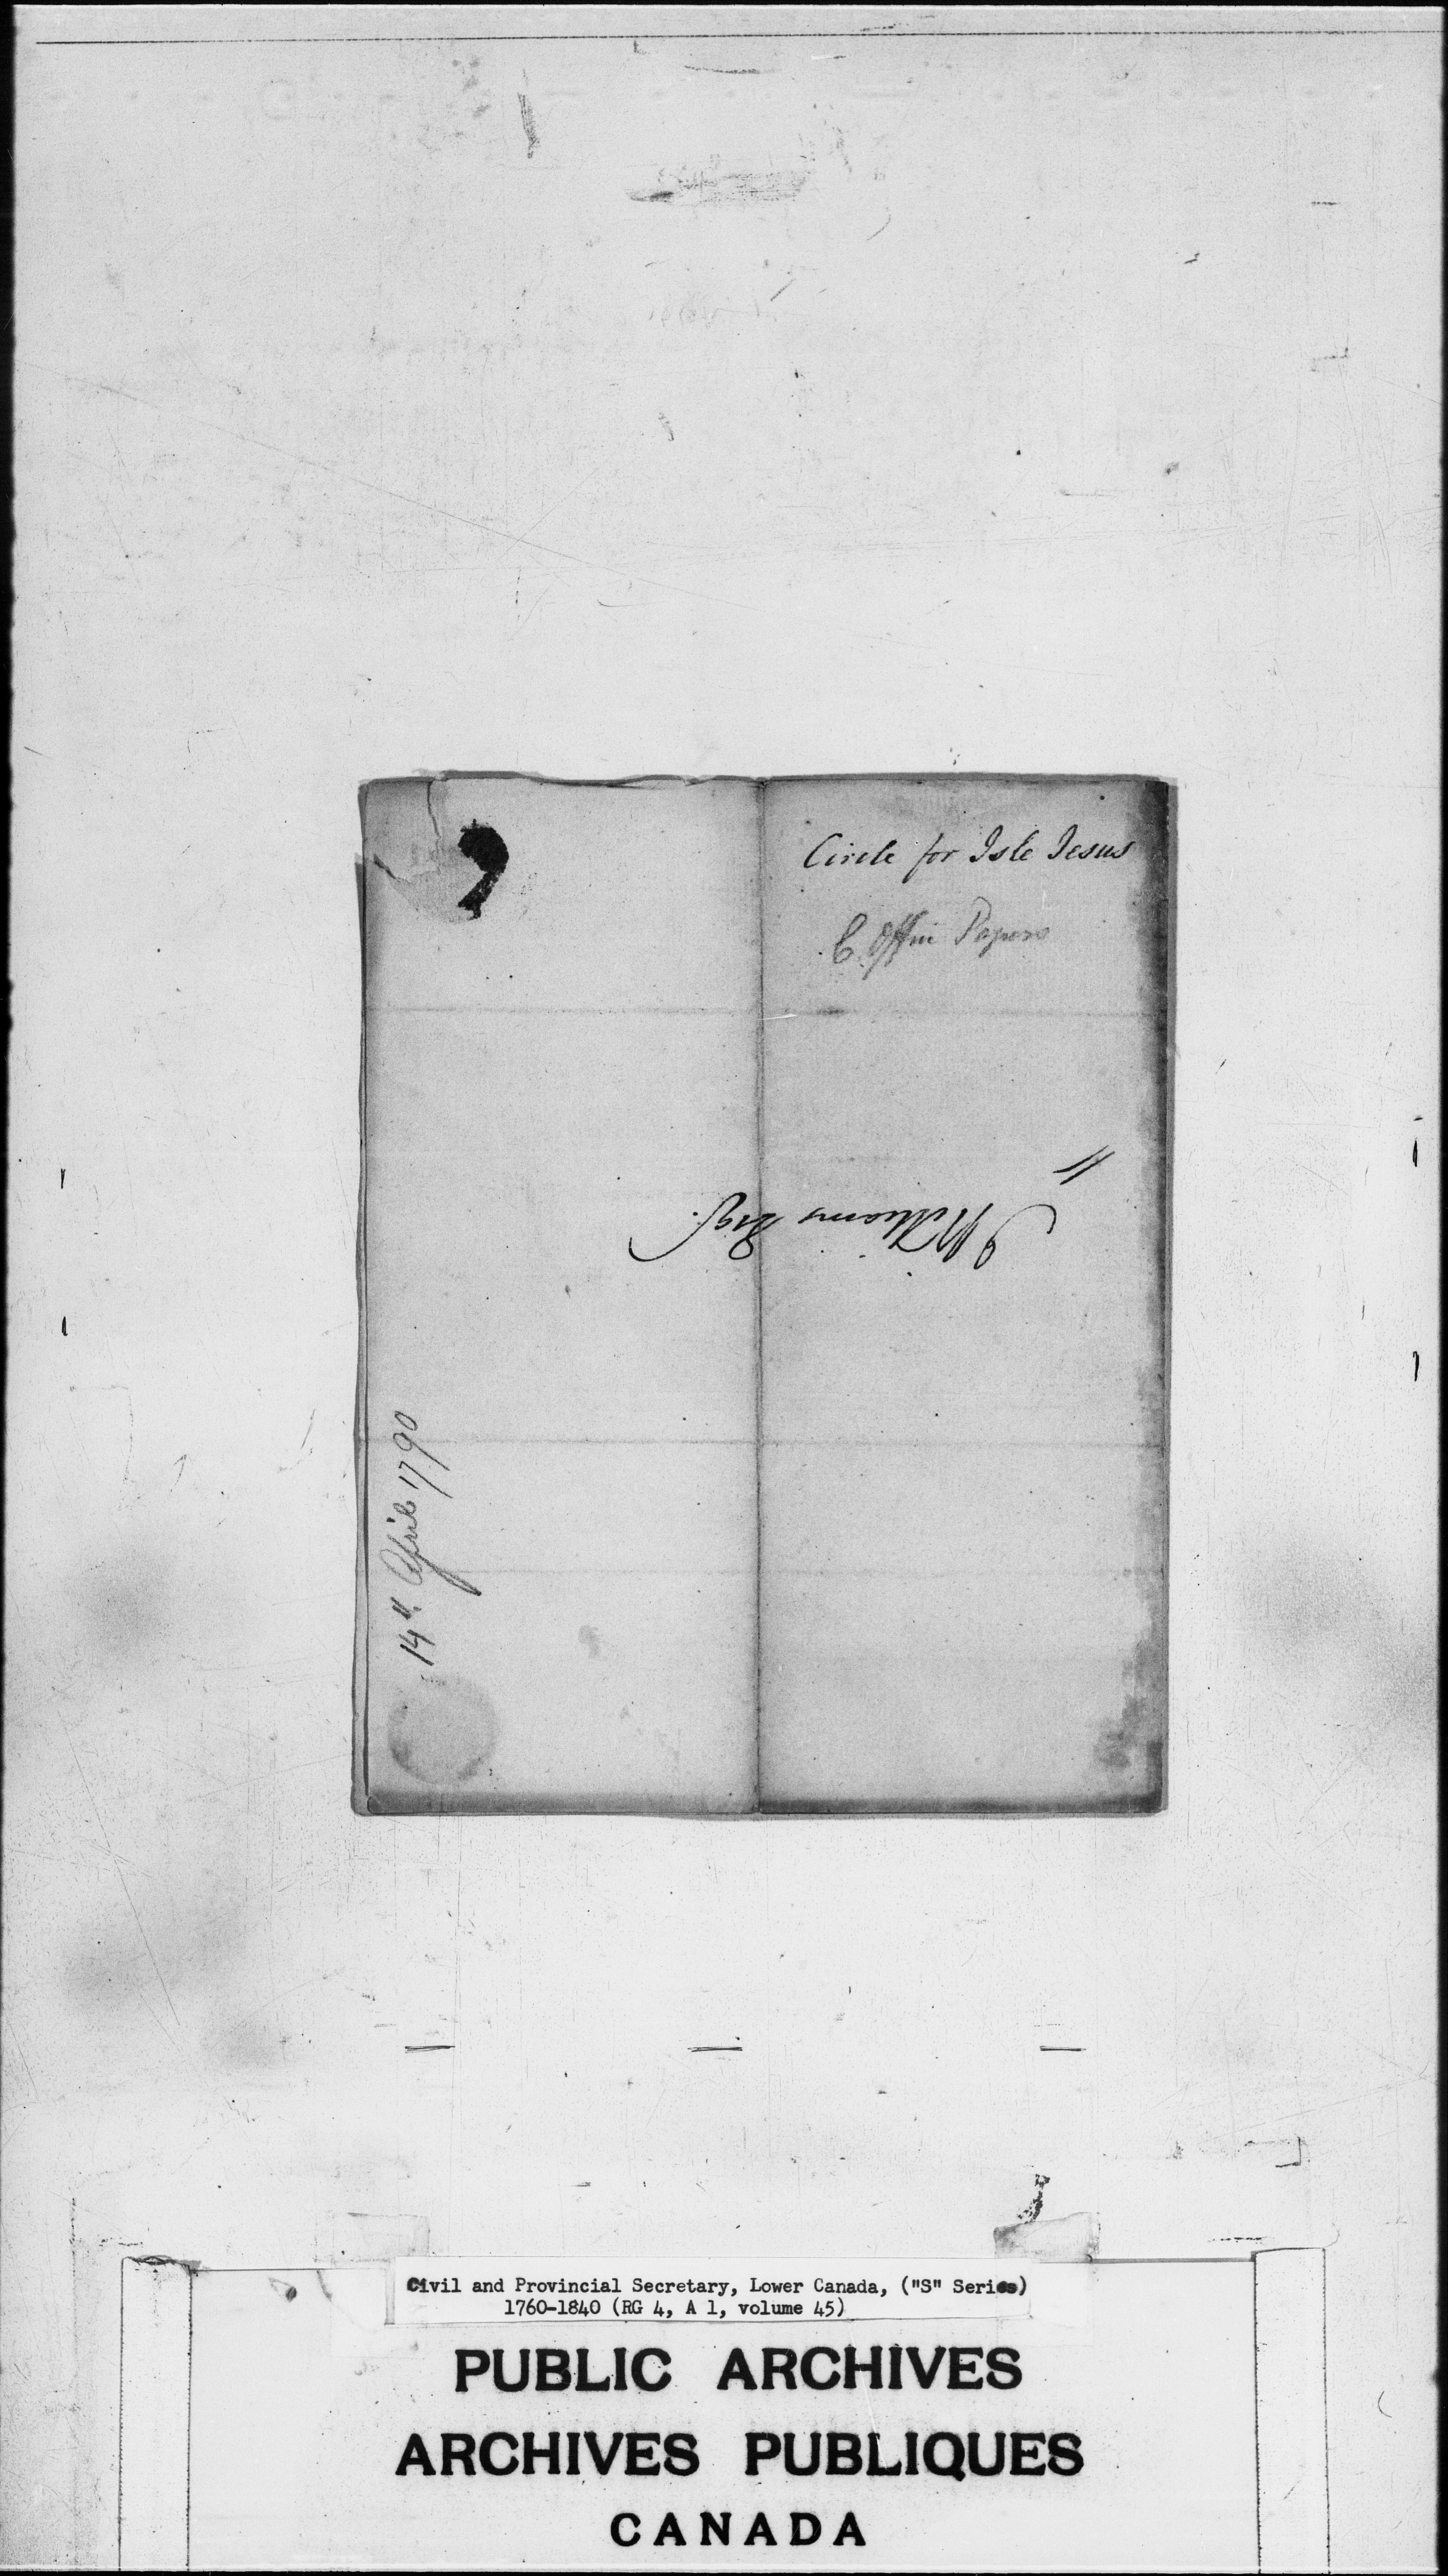 Circle for Isle Jesus
C. Offin Papers
J Williams Esqr.
14th April 1790
Civil and Provincial Secretary, Lower Canada, ("S" Series)
1760-1840 (RG 4, A 1, volume 45)
PUBLIC ARCHIVES
ARCHIVES PUBLIQUES
CANADA